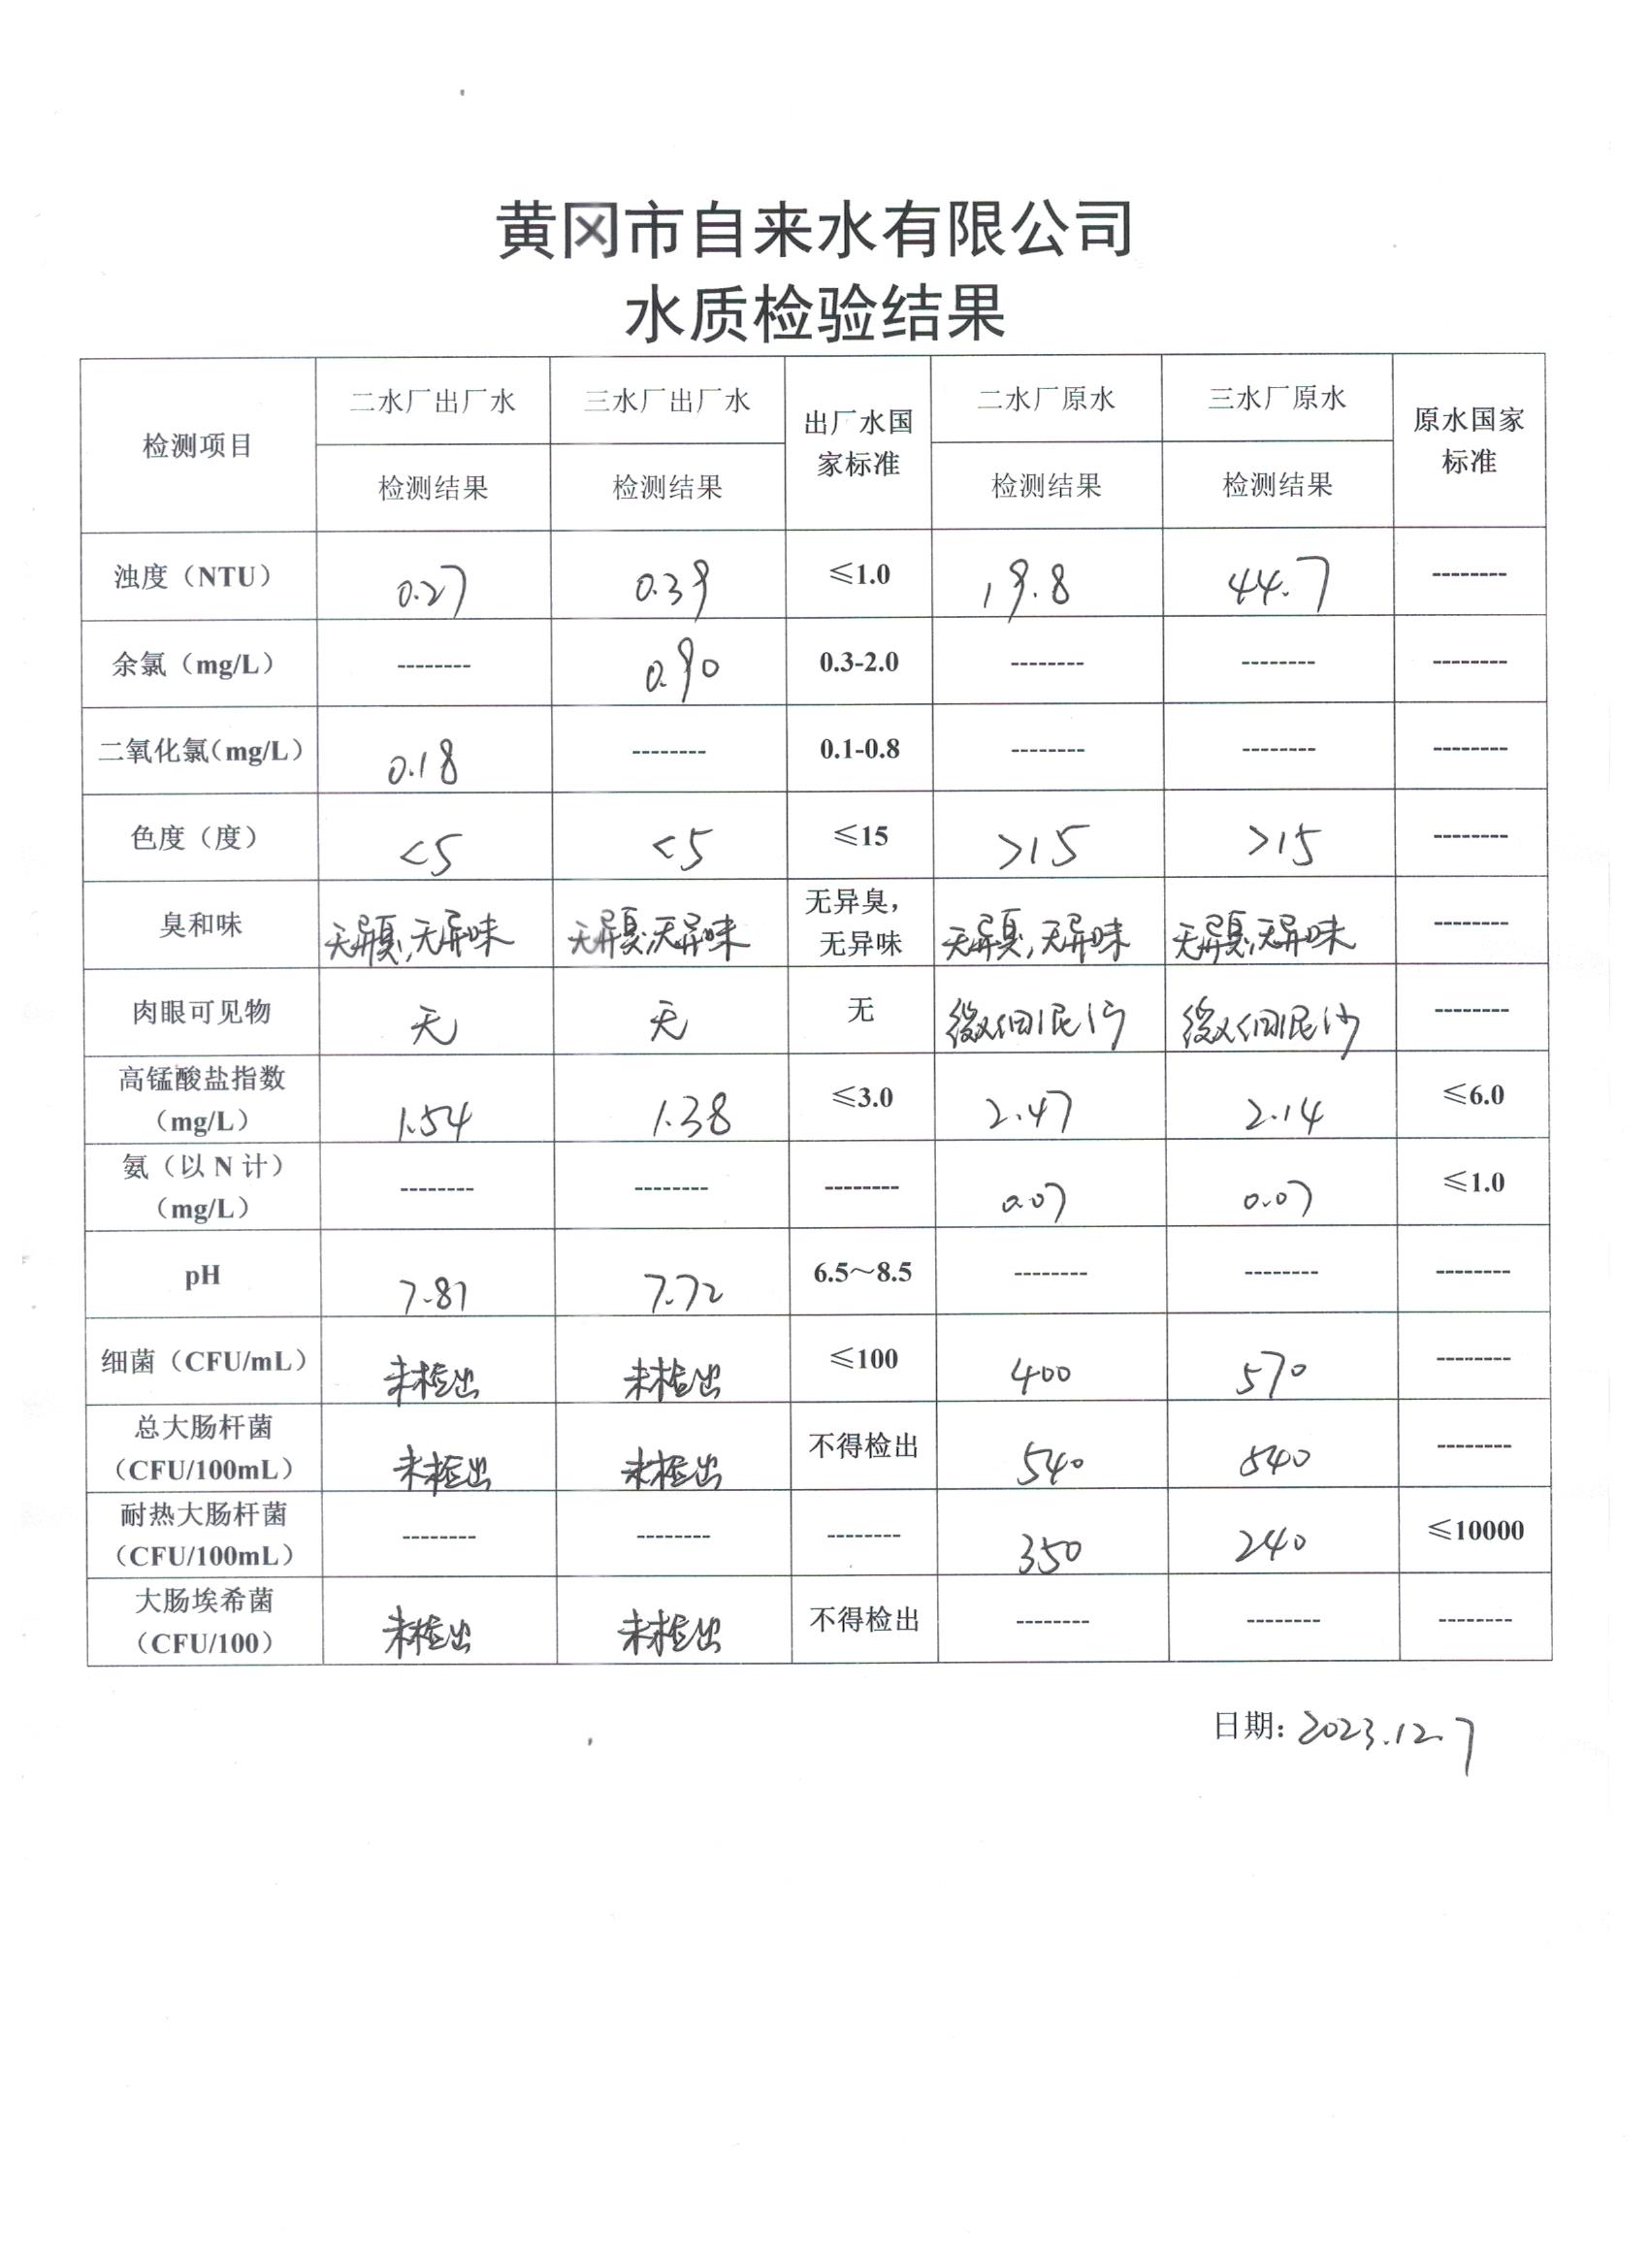 黄冈市自来水有限公司
水质检验结果
检测项目 二水厂出厂水 三水厂出厂水 出厂水国家标准 二水厂原水 三水厂原水 原水国家标准
检测结果 检测结果 检测结果 检测结果
浊度（NTU） 0.27 0.39 ≤1.0 19.8 44.7 --------
余氯（mg/L） -------- 0.90 0.3-2.0 -------- -------- --------
二氧化氯（mg/L） 0.18 -------- 0.1-0.8 -------- -------- --------
色度（度） <5 <5 ≤15 >15 >15 --------
臭和味 无异臭,无异味 无异臭,无异味 无异臭，无异味 无异臭,无异味 无异臭,无异味 --------
肉眼可见物 无 无 无 微细泥沙 微细泥沙 --------
高锰酸盐指数（mg/L） 1.54 1.38 ≤3.0 2.47 2.14 ≤6.0
氨（以 N 计）（mg/L） -------- -------- -------- 0.07 0.07 ≤1.0
pH 7.87 7.72 6.5～8.5 -------- -------- --------
细菌（CFU/mL） 未检出 未检出 ≤100 400 570 --------
总大肠杆菌（CFU/100mL） 未检出 未检出 不得检出 540 540 --------
耐热大肠杆菌（CFU/100mL） -------- -------- -------- 350 240 ≤10000
大肠埃希菌（CFU/100） 未检出 未检出 不得检出 -------- -------- --------
日期: 2023.12.7